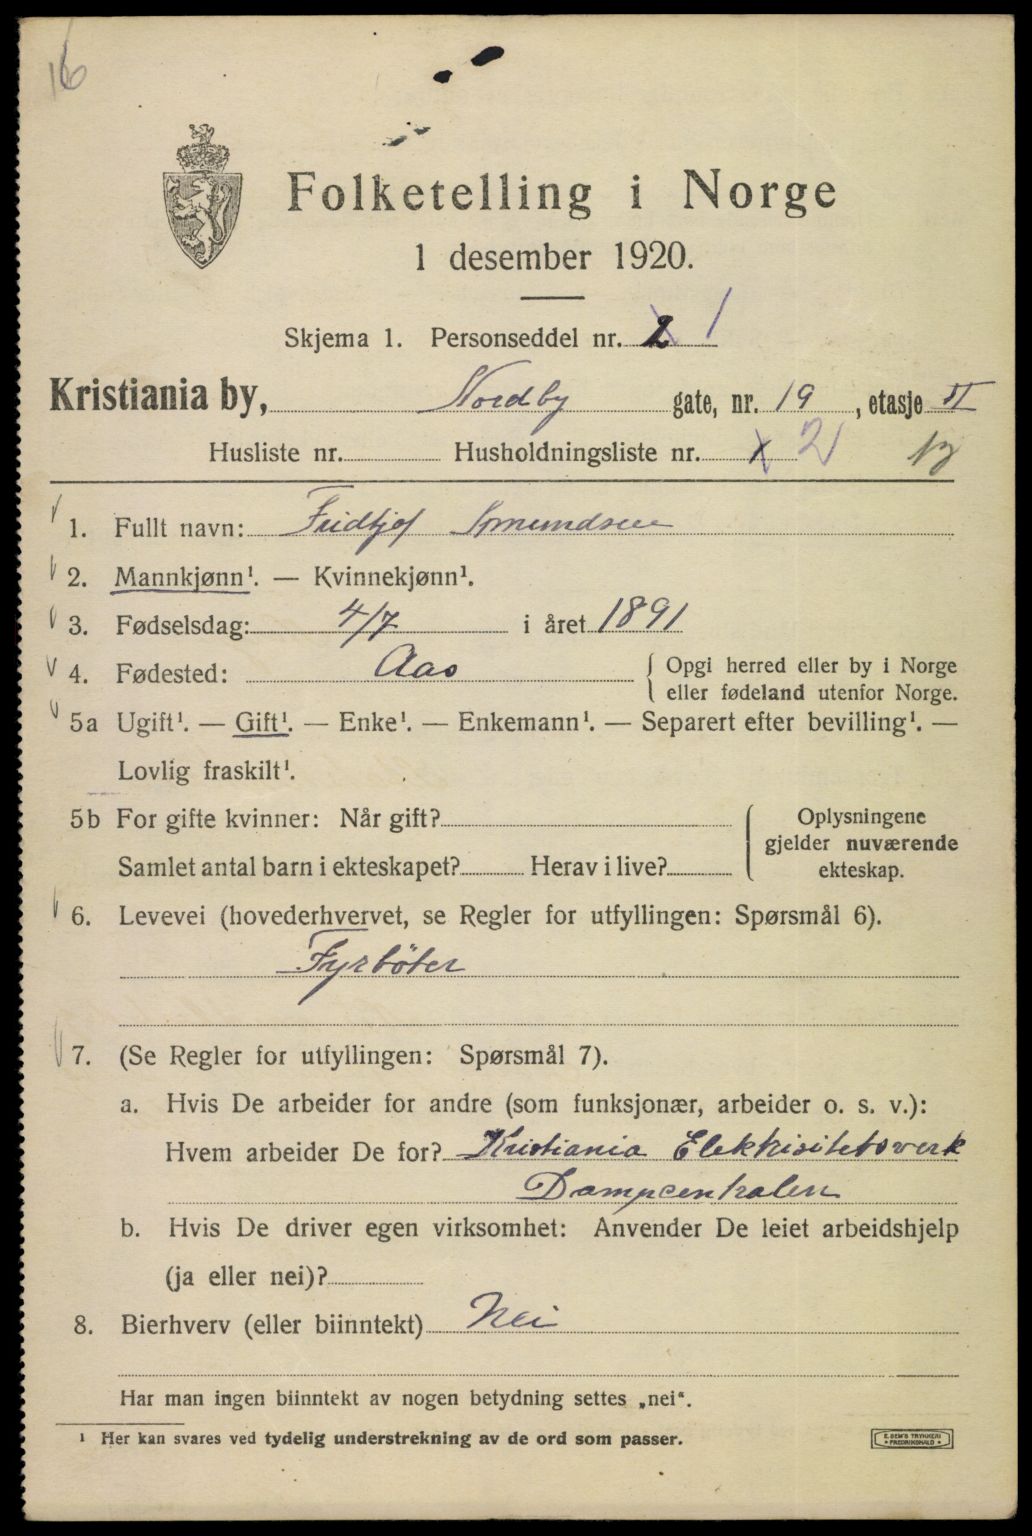 16
Folketelling i Norge
1 desember 1920.
Skjema 1. Personseddel nr. 2 1
Kristiania by, Nordby gate, nr. 19, etasje II
Husliste nr. Husholdningsliste nr. 1 2
1. Fullt navn: Fridtjof Amundsen
2. Mannkjønn¹. — Kvinnekjønn¹.
3. Fødselsdag: 4/7 i året 1891
4. Fødested: Aas { Opgi herred eller by i Norge
eller fødeland utenfor Norge.
5a Ugift¹. — Gift¹. — Enke¹. — Enkemann¹. — Separert efter bevilling¹. —
Lovlig fraskilt¹.
5b For gifte kvinner: Når gift? { Oplysningene
gjelder nuværende
Samlet antal barn i ekteskapet? Herav i live? ekteskap.
6. Levevei (hovederhvervet, se Regler for utfyllingen: Spørsmål 6).
Fyrböter
7. (Se Regler for utfyllingen: Spørsmål 7).
a. Hvis De arbeider for andre (som funksjonær, arbeider o. s. v.):
Hvem arbeider De for? Kristiania Elektrisitetsverk
Dampcentralen
b. Hvis De driver egen virksomhet: Anvender De leiet arbeidshjelp
(ja eller nei)?
8. Bierhverv (eller biinntekt) Nei
Har man ingen biinntekt av nogen betydning settes „nei“.
¹ Her kan svares ved tydelig understrekning av de ord som passer.
E. SEM'S TRYKKERI
FREDRIKSHALD